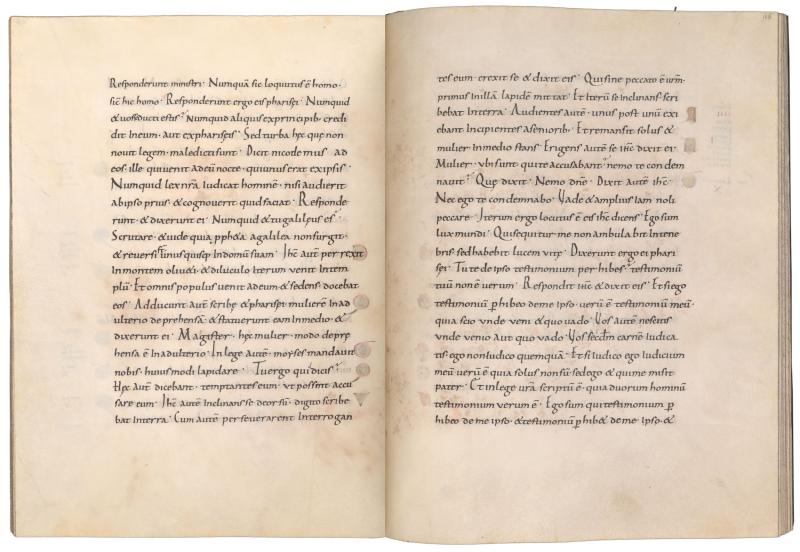 Responderunt ministri· Numquā sic loquutus ē homo·
sicut hic homo· Responderunt ergo eis pharisei· Numquid
& uos seducti estis? Numquid aliquis ex principib· credi
dit in eum· aut ex phariseis? Sed turba hęc quę non
nouit legem· maledicti sunt· Dicit nicodemus ad
eos· ille qui uenit ad eū nocte· qui unus erat ex ipsis·
Numquid lex nr̄a iudicat hominē· nisi audierit
ab ipso prius· & cognouerit quid faciat· Responde
runt· & dixerunt ei· Numquid & tu galileus es?
Scrutare· & uide quia ppheta a galilea non surgit·
& reuersi st̄ unusquisq; in domū suam· Ihc̄ aut̄ perrexit
in montem oliueti· & diluculo iterum uenit in tem
plū· Et omnis populus uenit ad eum· & sedens docebat
eos· Adducunt aut̄ scribę & pharisei mulierē in ad
ulterio deprehensā· & statuerunt eam in medio· &
dixerunt ei· Magister· hęc mulier· modo deprę
hensa ē in adulterio· In lege autē· moyses mandauit
nobis· huius modi lapidare· Tu ergo quid dicis?
Hęc autē dicebant· temptantes eum· ut possint accu
sare eum· Ihc̄ autē inclinans se deorsū· digito scribe
bat in terra· Cum autē perseuerarent interrogan
116
tes eum· erexit se & dixit eis· Qui sine peccato ē ur̄m·
primus in illā lapidē mittat· Et iterū se inclinans· scri
bebat in terra· Audientes autē· unus post unū exi
ebant incipientes a seniorib· Et remansit solus &
mulier in medio stans· Erigens autē se ihc̄ dixit ei·
Mulier· ubi sunt qui te accusabant? nemo te condem
nauit? Quę dixit· Nemo dn̄e· Dixit autē ihc̄·
Nec ego te condemnabo· Vade & amplius iam noli
peccare· Iterum ergo locutus ē eis ihc̄ dicens· Ego sum
lux mundi· Qui sequitur me non ambulabit in tene
bris· sed habebit lucem uitę· Dixerunt ergo ei phari
sei· Tu te de ipso testimonium perhibes? testimoniū
tuū non ē uerum· Respondit ihc̄ & dixit eis· Et si ego
testimoniū phibeo de me ipso· uerū ē testimoniū meū·
quia scio unde ueni & quo uado· Vos autē nescitis
unde uenio aut quo uado· Vos scdm̄ carnē iudica
tis· ego non iudico quemquā· Et si iudico ego iudicium
meū uerū ē quia solus non sū· sed ego & qui me misit
pater· Et in lege ur̄a scriptū ē· quia duorum hominū
testimonium uerum ē· Ego sum qui testimonium p
hibeo de me ipso· & testimoniū phib& de me ipso· &